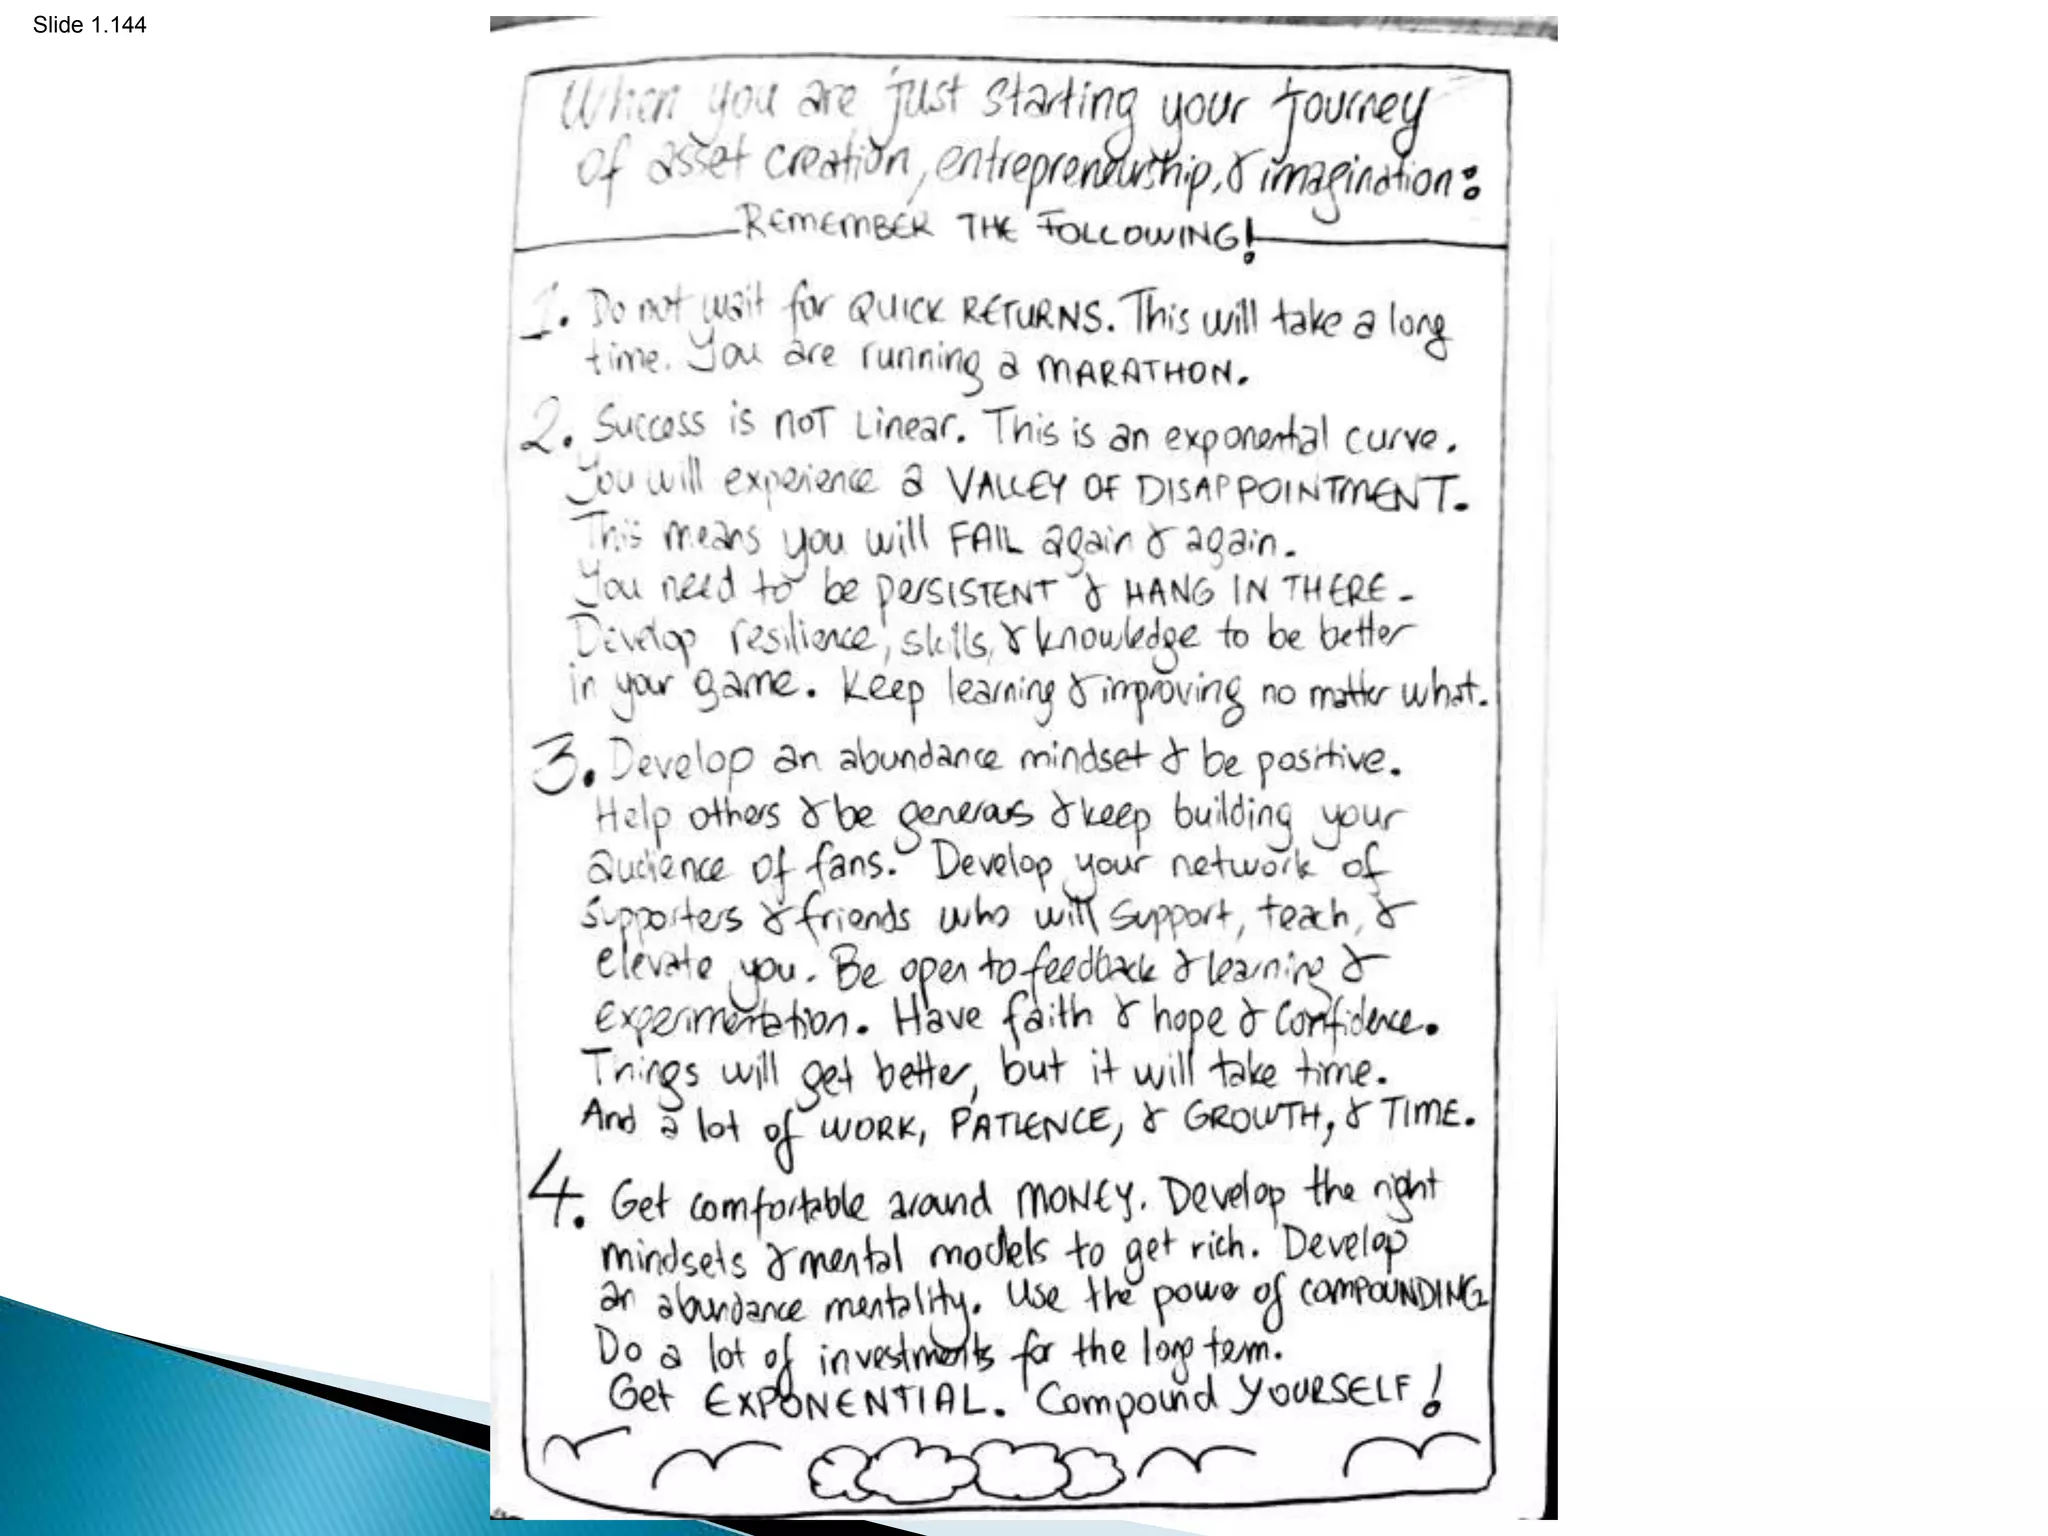 Slide 1.144
When you are just starting your journey
of asset creation, entrepreneurship, & imagination:
REMEMBER THE FOLLOWING!
1. Do not wait for QUICK RETURNS. This will take a long
time. You are running a MARATHON.
2. Success is NOT Linear. This is an exponential curve.
You will experience a VALLEY OF DISAPPOINTMENT.
This means you will FAIL again & again.
You need to be PERSISTENT & HANG IN THERE.
Develop resilience, skills, & knowledge to be better
in your game. Keep learning & improving no matter what.
3. Develop an abundance mindset & be positive.
Help others & be generous & keep building your
audience of fans. Develop your network of
supporters & friends who will support, teach, &
elevate you. Be open to feedback & learning &
experimentation. Have faith & hope & confidence.
Things will get better, but it will take time.
And a lot of WORK, PATIENCE, & GROWTH, & TIME.
4. Get comfortable around MONEY. Develop the right
mindsets & mental models to get rich. Develop
an abundance mentality. Use the power of COMPOUNDING
Do a lot of investments for the long term.
Get EXPONENTIAL. Compound YOURSELF!